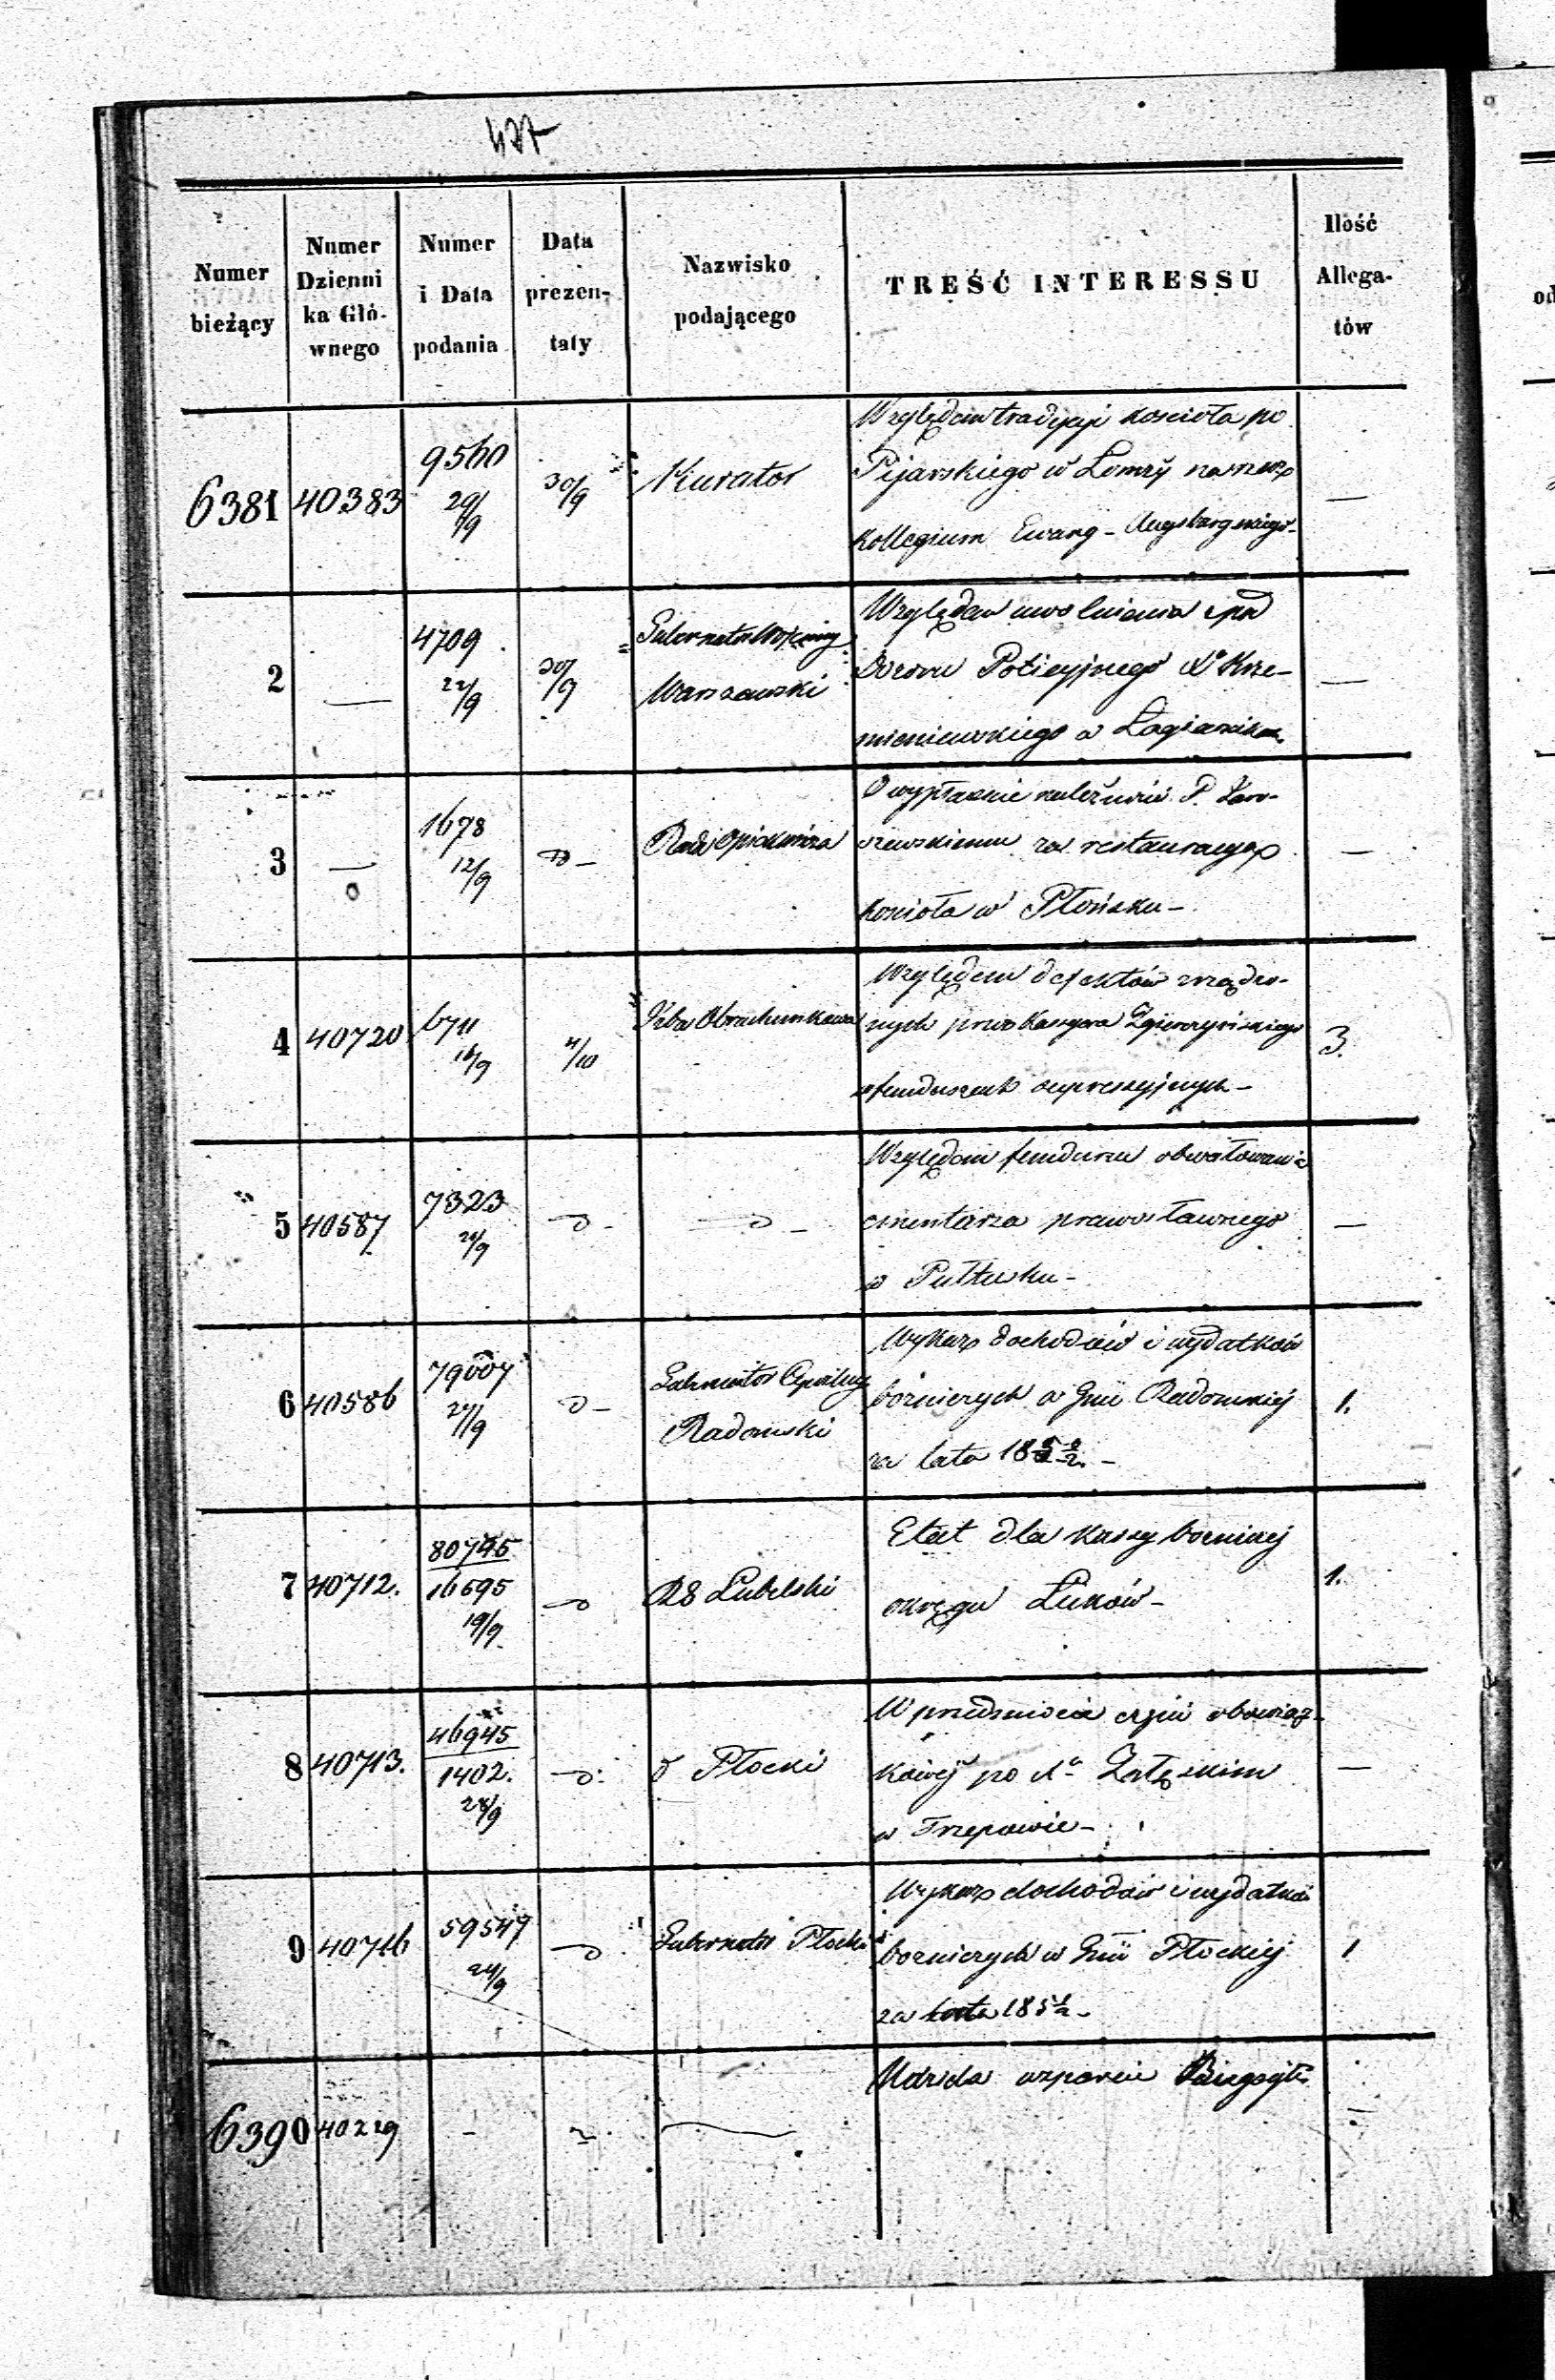 427
Numer bieżący
Numer Dzienni ka Głó- wnego
Numer i Data podania
Data prezen- taty
Nazwisko podającego
TREŚĆ INTERESSU
Ilość Allega- tów
6381 40383 9560 20/9 30/9 Kurator
Względem tradycyi kościoła po
Pijarskiego w Łomży na rzecz
Kollegium Ewang- Augsburgskiego- —
2 — 4709 22/9 30/9 Gubernator Wojenny
Warszawski
Względem uwolnienia z pod
Dozoru Policyjnego Xa Krze-
mieniewskiego w —
3 — 1678 12/9 Rada Opiekuńcza
O wypłacenie należności P. Jaro-
szewskiemu za restauracyę
Kościoła w Płońsku- —
4 40720 6711 16/9 4/10 Izba Obrachunkowa
Względem defektów zrządzo-
nych przez Kassyera Zgierzyńskiego
w funduszach supressyjnych- 3.
5 40587 7323 24/9
Względem funduszu obwałowania
cmentarza prawosławnego
w Pułtusku- —
6 40586 79007 24/9 Gubernator Cywilny
Radomski
Wykaz dochodów i wydatków
bożniczych w Gnii Radomskiej
za lata 18 1.
7 40712. 80745
16695
19/9 RG Lubelski
Etat dla Kassy bożniczej
okręgu Łuków- 1.
8 40713. 46945
1402.
28/9 Płocki
W przedmiocie obowiąz-
kowej po Xu Załęskim
w Trzepowie- —
9 40716 59547 24/9 Gubernator Płocki
Wykaz dochodów i wydatków
bożniczych w Gnii Płockiej
za lata 185½- 1
6390 40229 -
wsparcie —